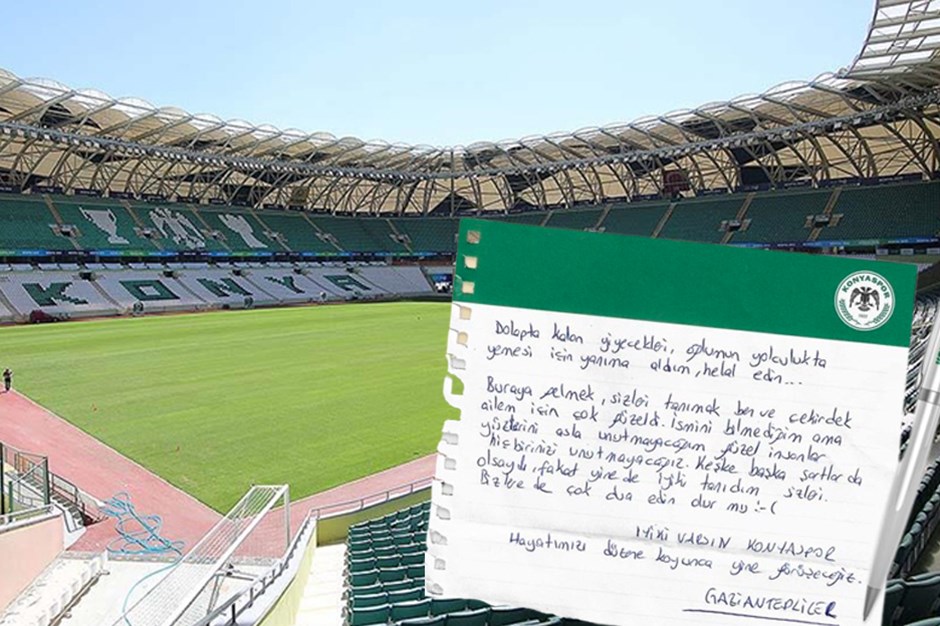 KONYA
KONYASPOR
1922
Dolapta kalan yiyecekleri, oğlumun yolculukta
yemesi için yanıma aldım, helal edin...
Buraya gelmek, sizleri tanımak ben ve çekirdek
ailem için çok güzeldi. İsmini bilmediğim ama
yüzlerini asla unutmayacağım güzel insanlar
hiçbirinizi unutmayacağız. Keşke başka şartlarda
olsaydı, fakat yine de iyiki tanıdım sizleri.
Bizlere de çok dua edin olur mu :-(
İYİKİ VARSIN KONYASPOR
Hayatımızı düzene koyunca yine görüşeceğiz.
GAZİANTEPLİLER